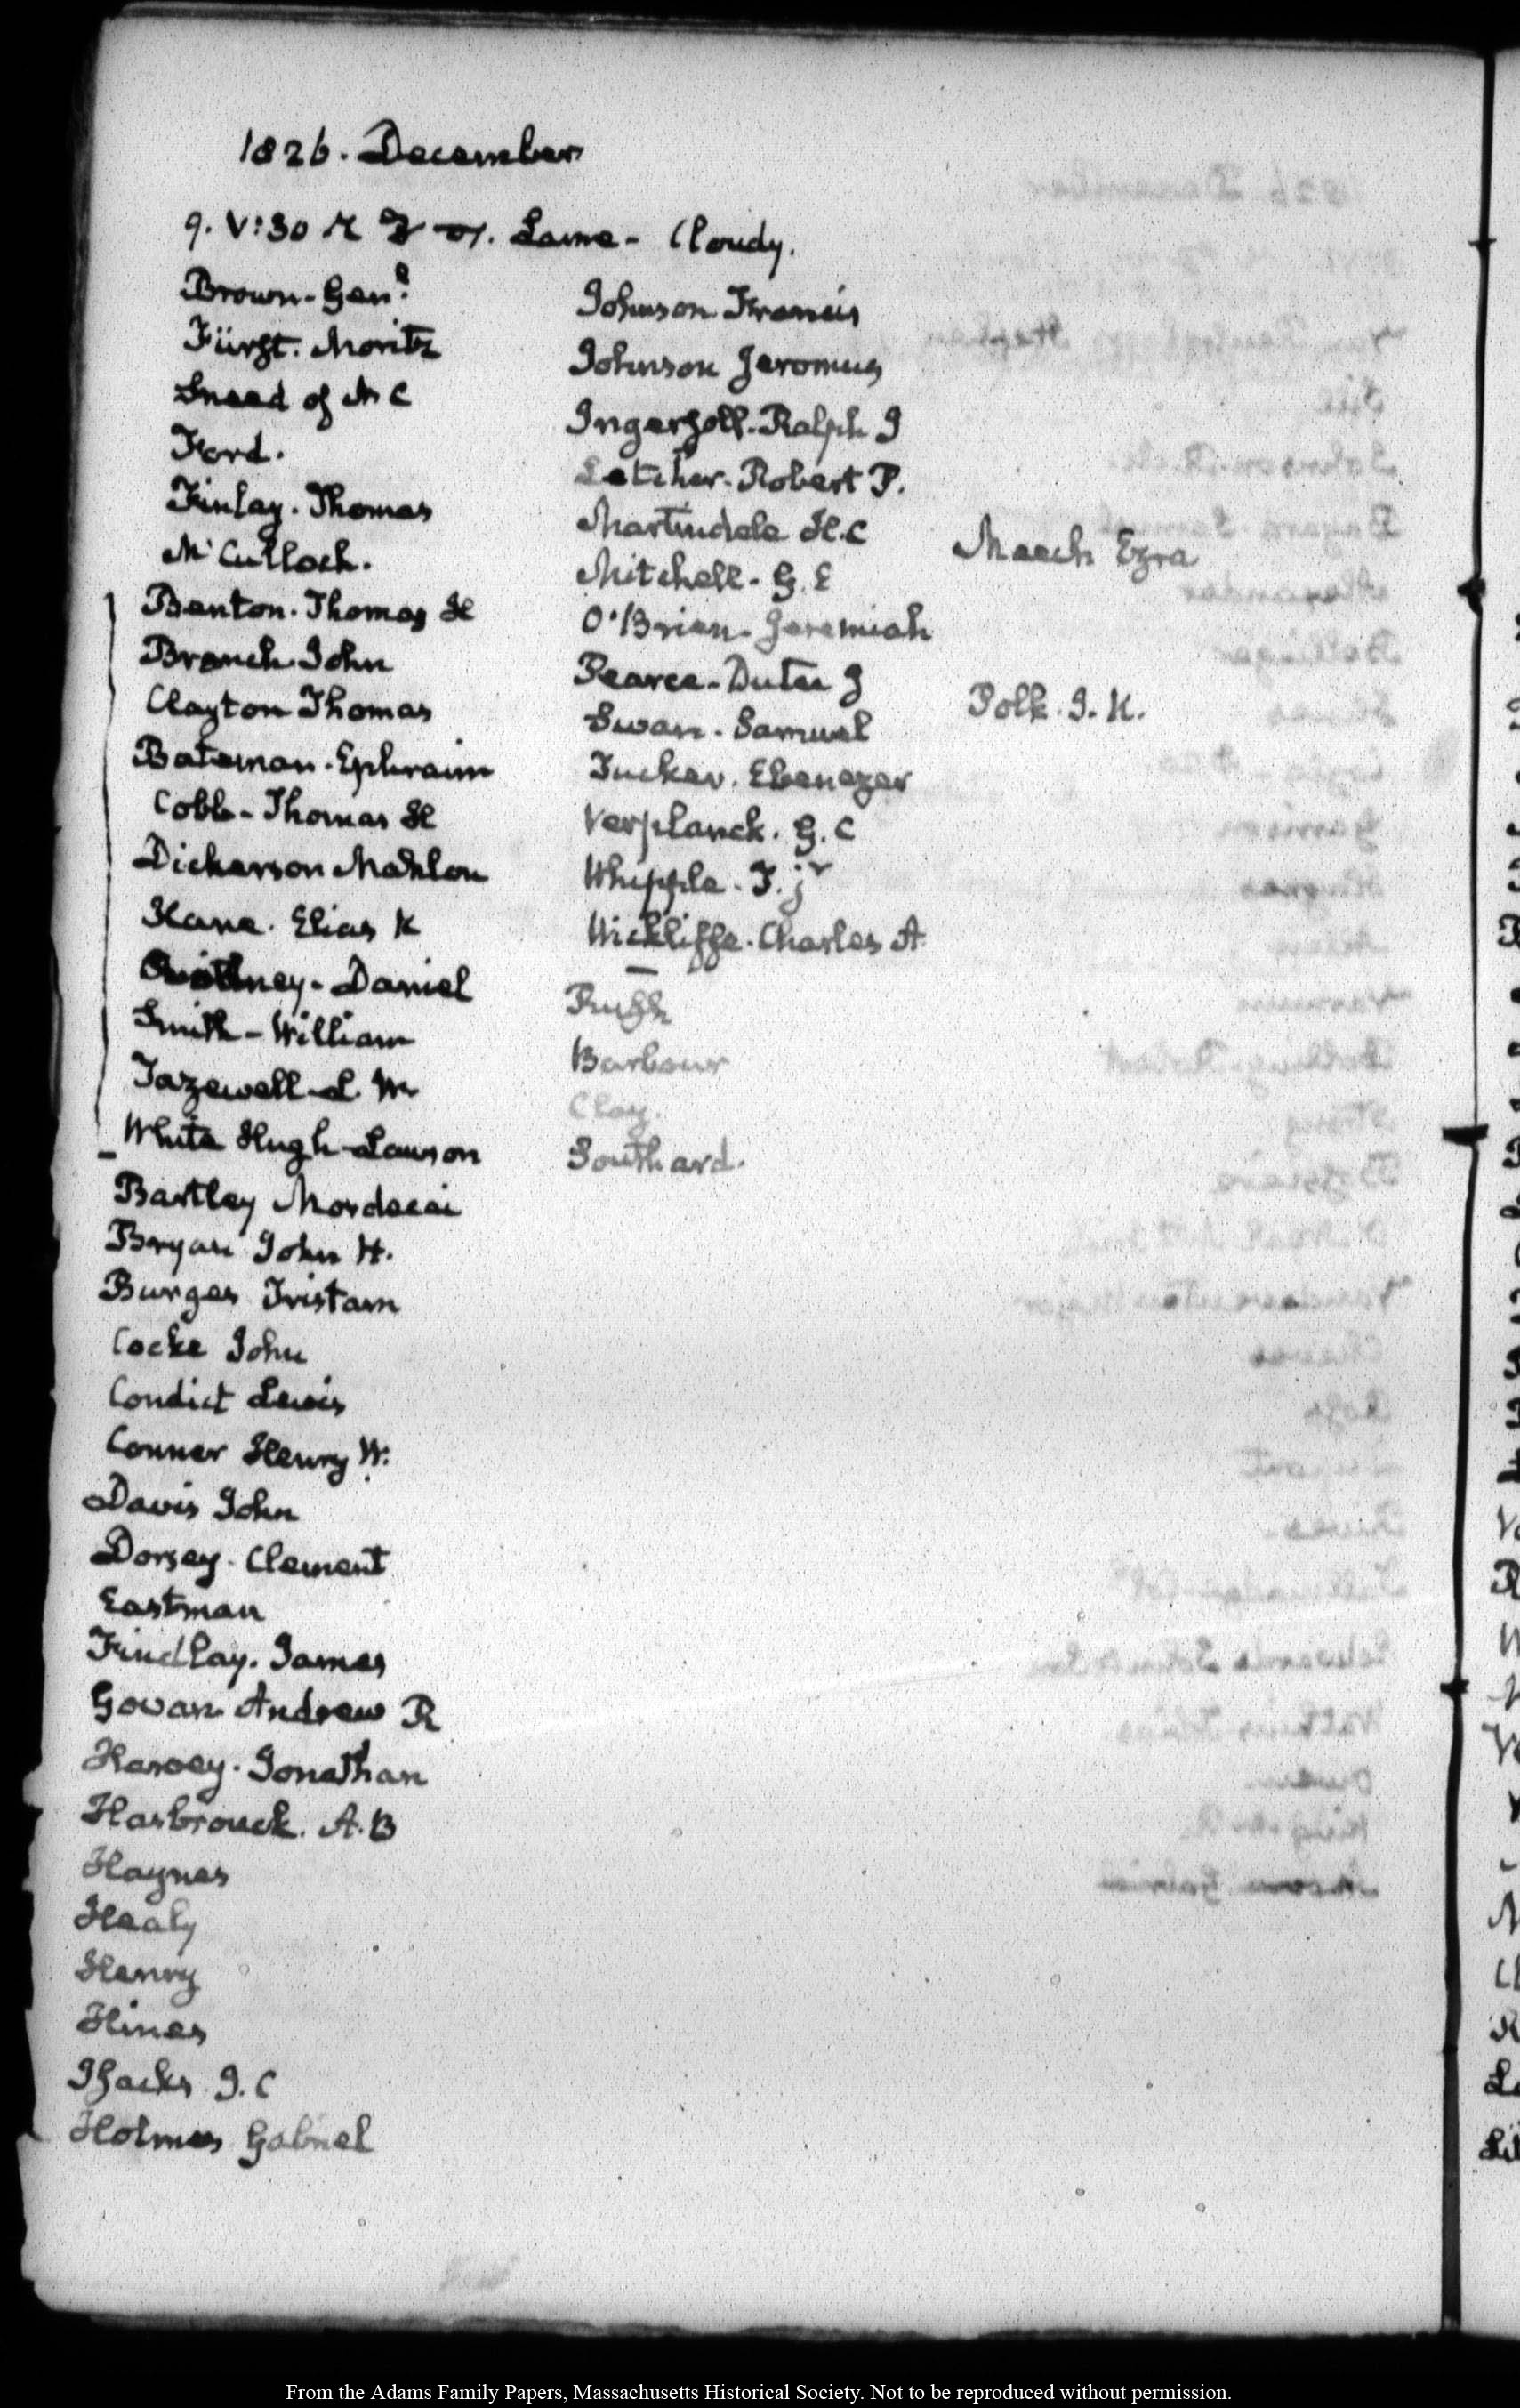 1826. December
9. V:30 Same- Cloudy.
Brown- Genl.
Fürst. Moritz
Sneed of N C
Ford.
Finlay. Thomas
McCulloch.
Benton. Thomas H
Branch. John
Clayton Thomas
Bateman. Ephraim
Cobb- Thomas H
Dickerson Mahlon
Kane. Elias K
Daniel
Smith- William
Tazewell- L. W.
White Hugh Lawson
Bartley Mordecai
Bryan John H.
Burges Tristam
Cocke John
Condict Lewis
Conner Henry W.
Davis John
Dorsey. Clement
Eastman
Findlay. James
Govan Andrew R
Harvey. Jonathan
Hasbrouck. A. B
Haynes
Healy
Henry
Hines
Isacks J. C
Holmes Gabriel
Johnson Francis
Johnson Jeromus
Ingersoll. Ralph I
Letcher. Robert P.
Martindale H. C
Mitchell- G. E
O'Brien- Jeremiah
Pearce- Dutee J
Swan. Samuel
Tucker. Ebenezer
Verplanck. G. C
Whipple. T. jr
Wickliffe. Charles A
Rush
Barbour
Clay.
Southard.
Meech Ezra
Polk. J. K.
From the Adams Family Papers, Massachusetts Historical Society. Not to be reproduced without permission.